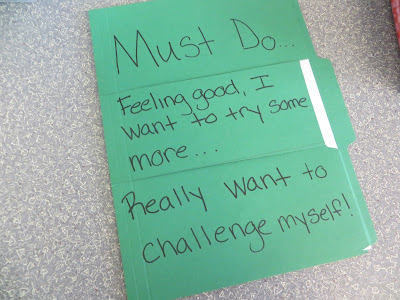 Must Do...
Feeling good, I
want to try some
more...
Really want to
challenge myself!